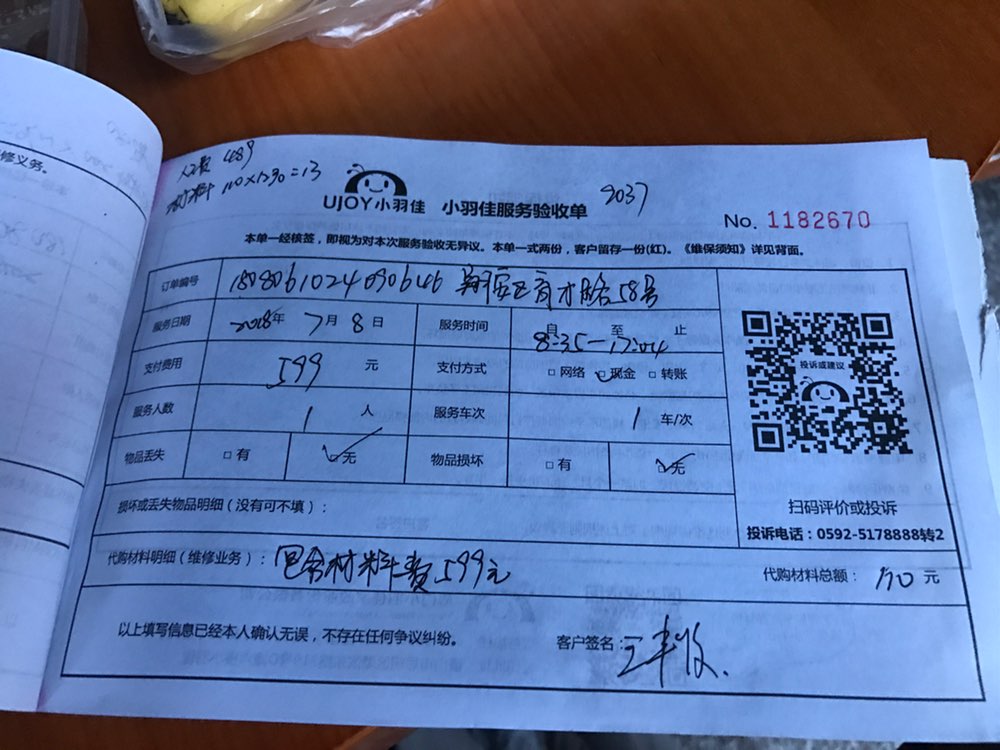 修义务。
人工费 489
材料 110×1230=13
UJOY小羽佳 小羽佳服务验收单 2037
No. 1182670
本单一经核签，即视为对本次服务验收无异议。本单一式两份，客户留存一份(红)。《维保须知》详见背面。
订单编号 1808061024090646 翔安区育才路58号
服务日期 2018年 7月8日 服务时间 自 至 止 8:35-17:04
支付费用 599 元 支付方式 □网络 ☑现金 □转账
服务人数 1 人 服务车次 1 车/次
物品丢失 □有 ☑无 物品损坏 □有 ☑无
投诉或建议
损坏或丢失物品明细（没有可不填）：
扫码评价或投诉
投诉电话：0592-5178888转2
代购材料明细（维修业务）： 包含材料费599元 代购材料总额： 110 元
以上填写信息已经本人确认无误，不存在任何争议纠纷。 客户签名：